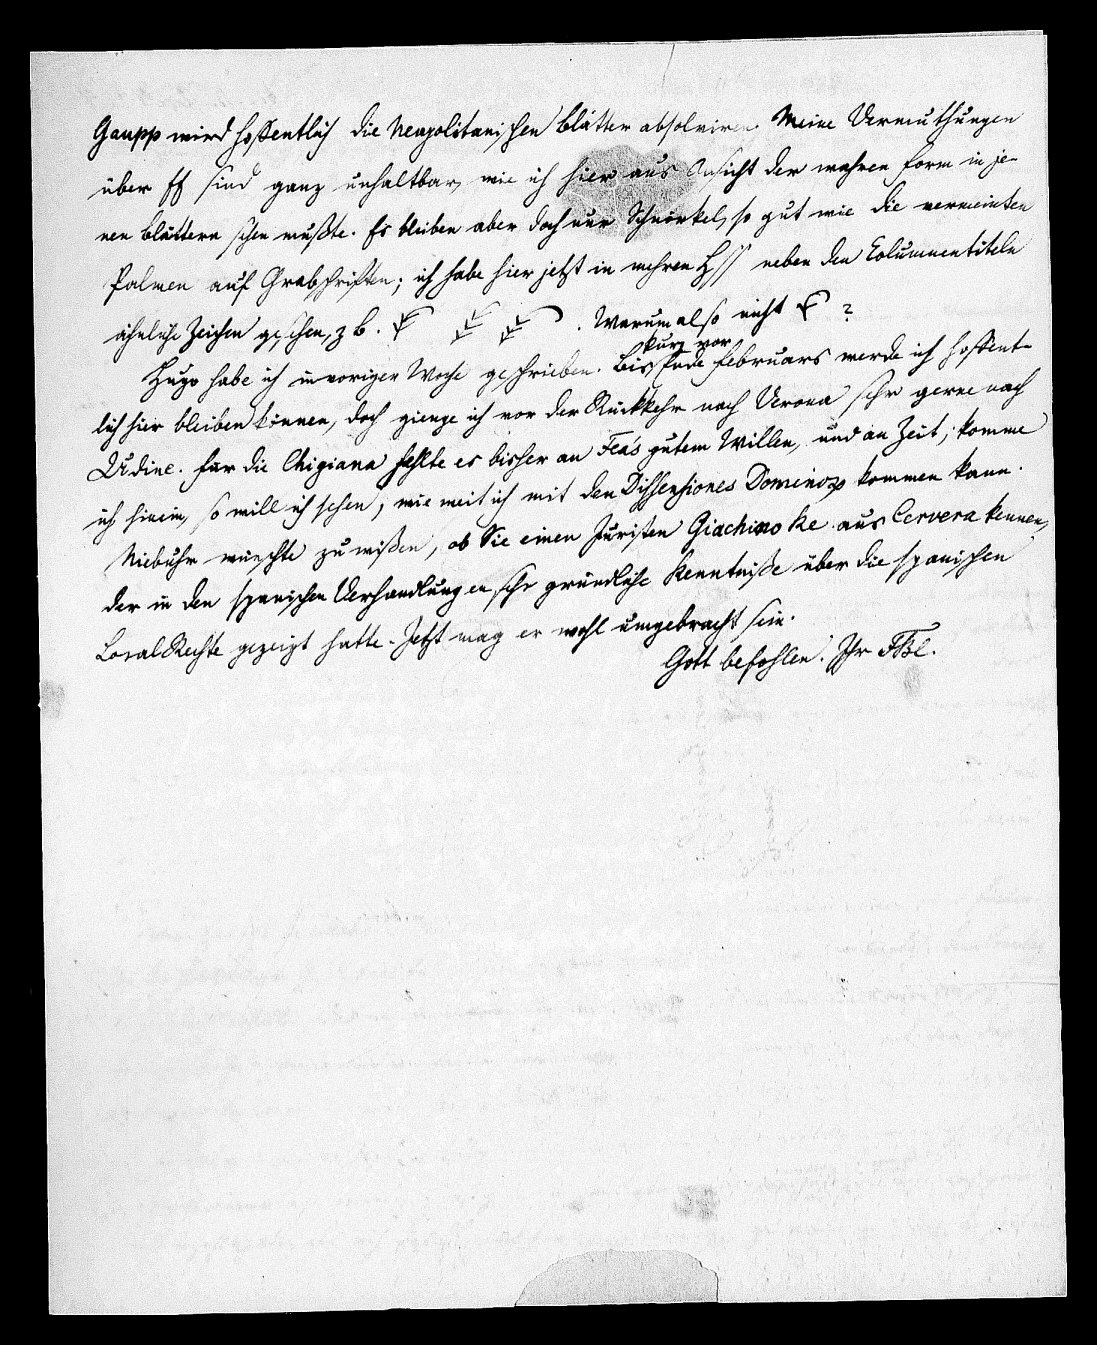 Gaupp wird hoffentlich die Neapolitanischen Blätter absolviren. Meine Vermuthungen
über ff sind ganz unhaltbar, wie ich hier aus Ansicht der wahren Form in je-
nen Blättern sehen mußte. Es bleiben aber doch nur Schnörkel, so gut wie die vermeinten
Palmen auf Grabschriften; ich habe hier jetzt in mehren Hss neben den Columnentiteln
ähnliche Zeichen gesehen, z b. . Warum also nicht ?
Hugo habe ich in voriger Woche geschrieben. Bis kurz vor Ende Februars werde ich hoffent-
lich hier bleiben können, doch gienge ich vor der Rückkehr nach Verona sehr gerne nach
Udine. Für die Chigiana fehlte es bisher an Fea's gutem Willen, und an Zeit; komme
ich hinein, so will ich sehen, wie weit ich mit den Dissensiones Dominor kommen kann.
Niebuhr wünschte zu wißen, ob Sie einen Juristen Giachino Re aus Cervera kennen,
der in den spanischen Verhandlungen sehr gründliche Kenntniße über die spanischen
LocalRechte gezeigt hatte. Jetzt mag er wohl umgebracht sein.
Gott befohlen. Ihr FBl.